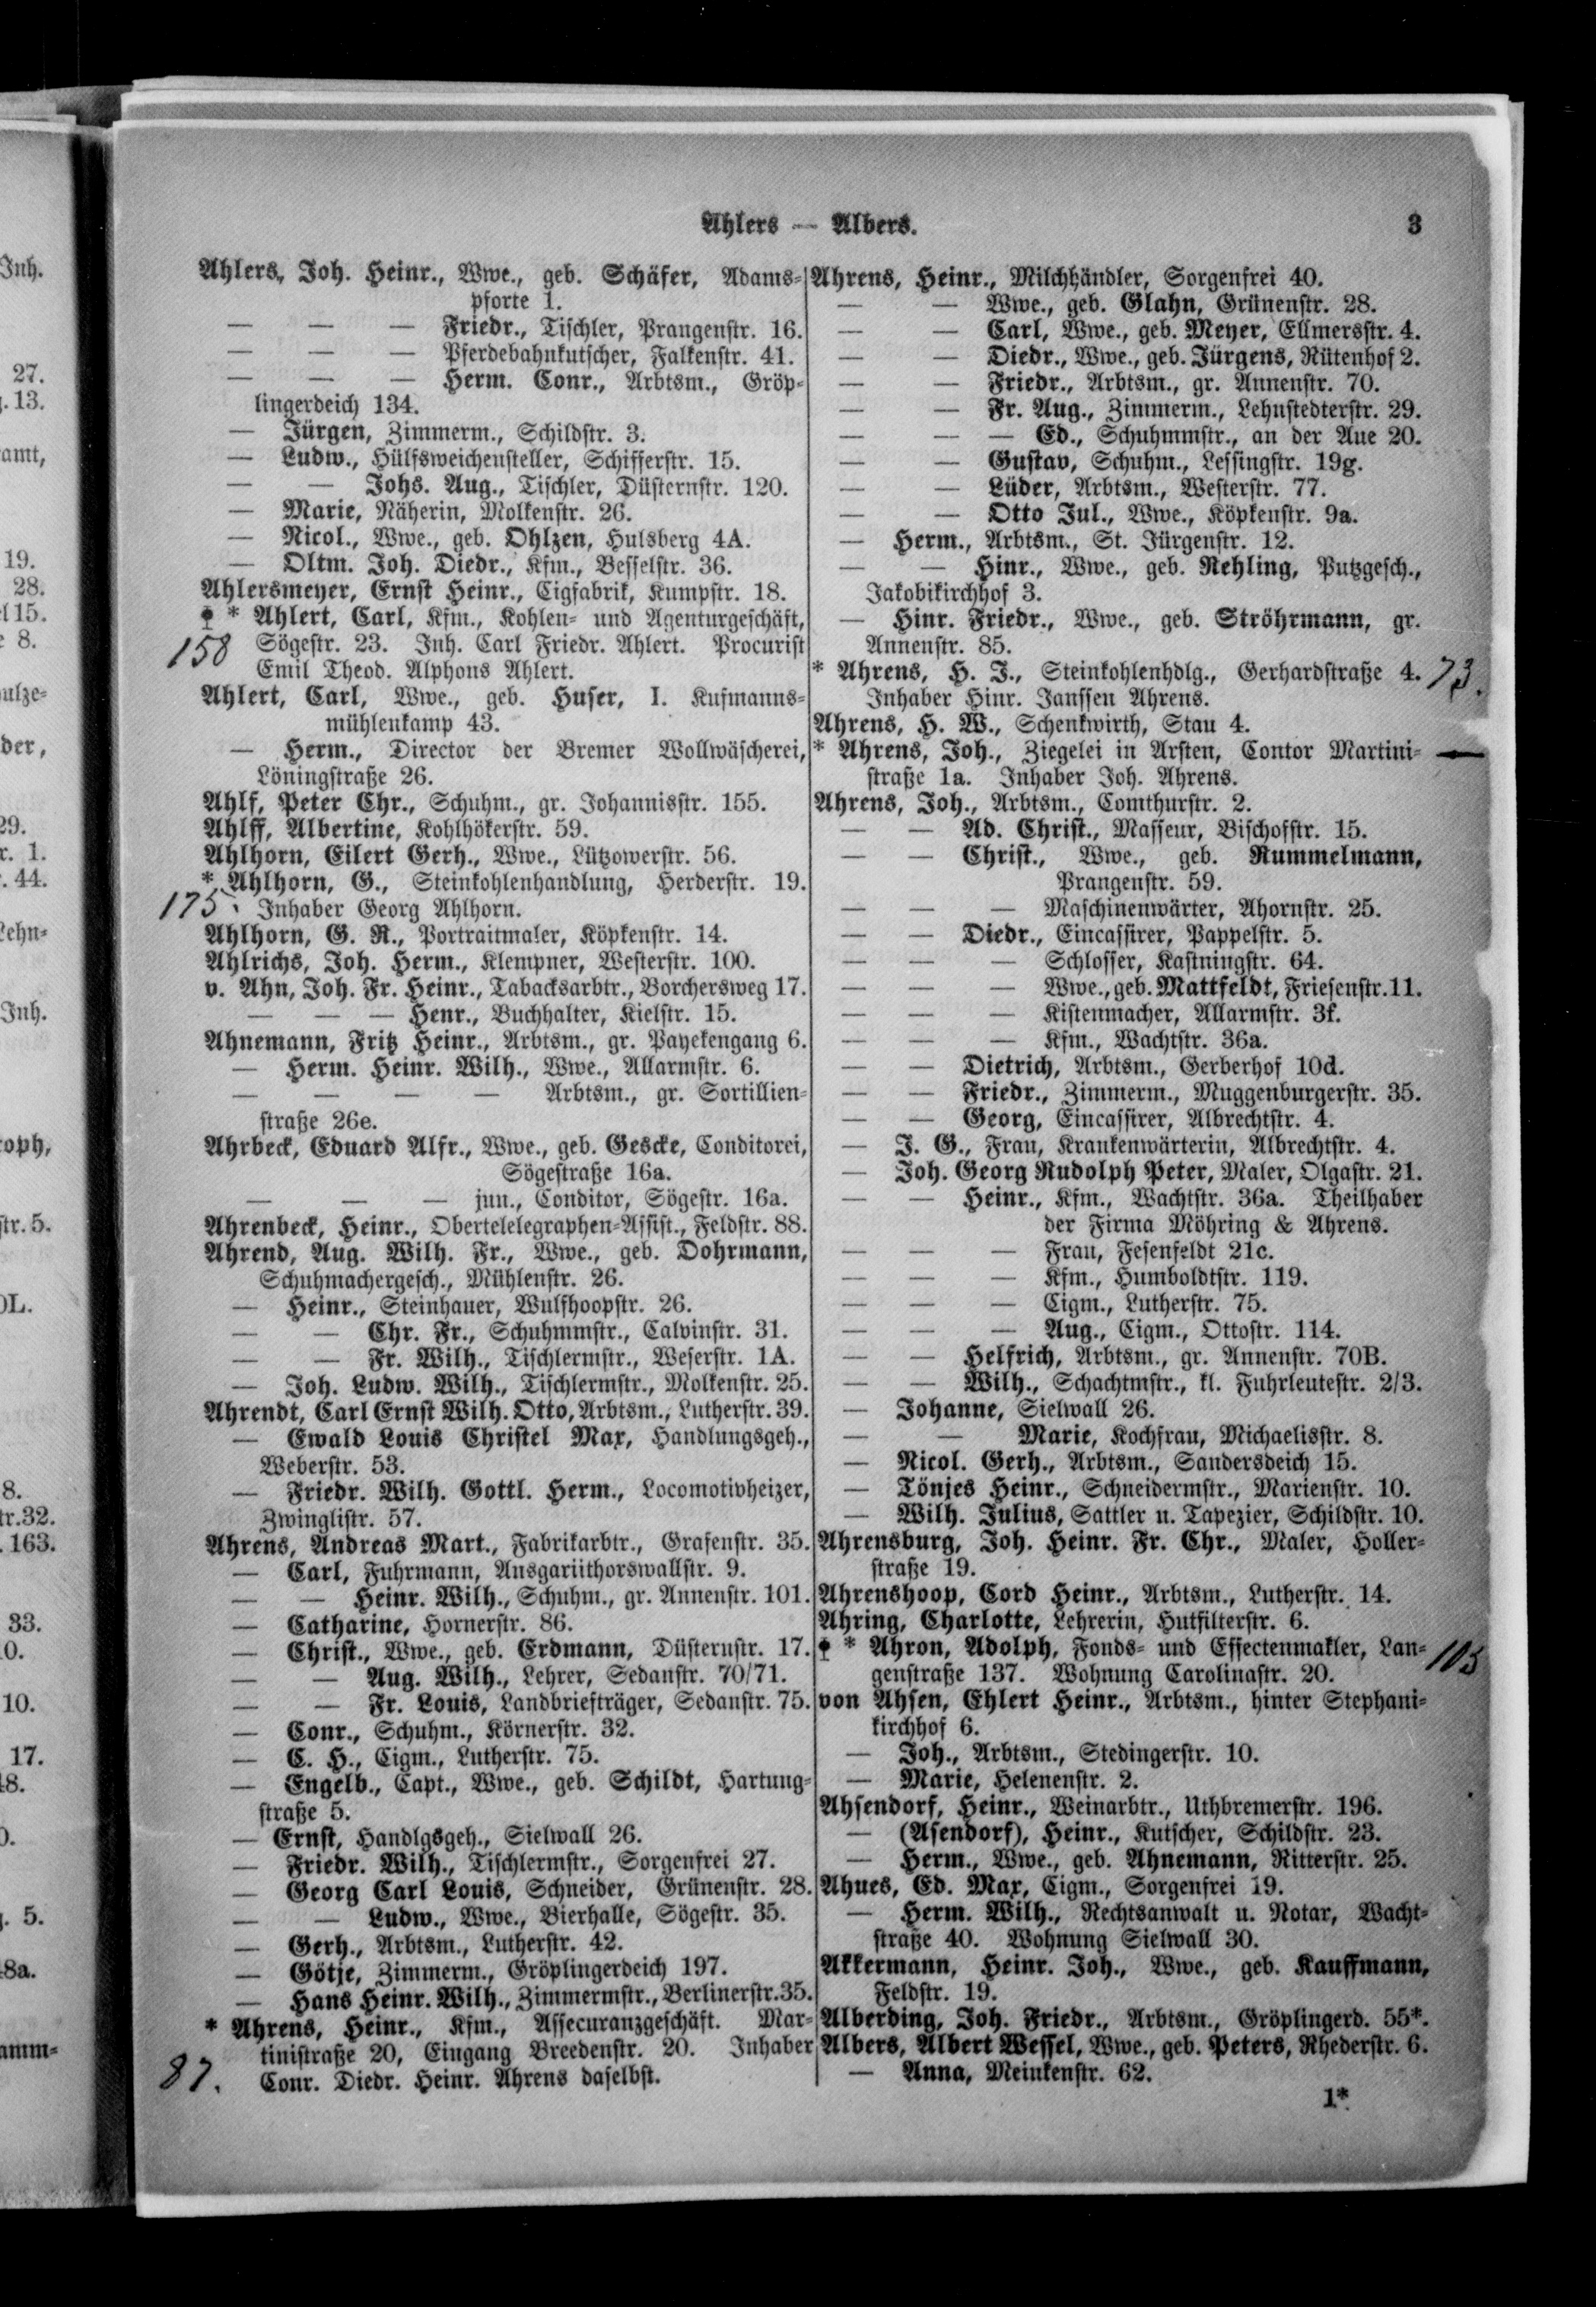 Ahlers — Albers.
3
Ahlers, Joh. Heinr., Wwe., geb. Schäfer, Adams-
pforte 1.
— — — Friedr., Tischler, Prangenstr. 16.
— — — Pferdebahnkutscher, Falkenstr. 41.
— — — Herm. Conr., Arbtsm., Gröp-
lingerdeich 134.
— Jürgen, Zimmerm., Schildstr. 3.
— Ludw., Hülfsweichensteller, Schifferstr. 15.
— — Johs. Aug., Tischler, Düsternstr. 120.
— Marie, Näherin, Molkenstr. 26.
— Nicol., Wwe., geb. Ohlzen, Hulsberg 4A.
— Oltm. Joh. Diedr., Kfm., Besselstr. 36.
Ahlersmeyer, Ernst Heinr., Cigfabrik, Kumpstr. 18.
* Ahlert, Carl, Kfm., Kohlen- und Agenturgeschäft,
158 Sögestr. 23. Inh. Carl Friedr. Ahlert. Procurist
Emil Theod. Alphons Ahlert.
Ahlert, Carl, Wwe., geb. Huser, I. Kufmanns-
mühlenkamp 43.
— Herm., Director der Bremer Wollwäscherei,
Löningstraße 26.
Ahlf, Peter Chr., Schuhm., gr. Johannisstr. 155.
Ahlff, Albertine, Kohlhökerstr. 59.
Ahlhorn, Eilert Gerh., Wwe., Lützowerstr. 56.
* Ahlhorn, G., Steinkohlenhandlung, Herderstr. 19.
175. Inhaber Georg Ahlhorn.
Ahlhorn, G. R., Portraitmaler, Köpkenstr. 14.
Ahlrichs, Joh. Herm., Klempner, Westerstr. 100.
v. Ahn, Joh. Fr. Heinr., Tabacksarbtr., Borchersweg 17.
— — — Henr., Buchhalter, Kielstr. 15.
Ahnemann, Fritz Heinr., Arbtsm., gr. Payekengang 6.
— Herm. Heinr. Wilh., Wwe., Allarmstr. 6.
— — — — Arbtsm., gr. Sortillien-
straße 26e.
Ahrbeck, Eduard Alfr., Wwe., geb. Gescke, Conditorei,
Sögestraße 16a.
— — — jun., Conditor, Sögestr. 16a.
Ahrenbeck, Heinr., Obertelelegraphen-Assist., Feldstr. 88.
Ahrend, Aug. Wilh. Fr., Wwe., geb. Dohrmann,
Schuhmachergesch., Mühlenstr. 26.
— Heinr., Steinhauer, Wulfhoopstr. 26.
— — Chr. Fr., Schuhmmstr., Calvinstr. 31.
— — Fr. Wilh., Tischlermstr., Weserstr. 1A.
— Joh. Ludw. Wilh., Tischlermstr., Molkenstr. 25.
Ahrendt, Carl Ernst Wilh. Otto, Arbtsm., Lutherstr. 39.
— Ewald Louis Christel Max, Handlungsgeh.,
Weberstr. 53.
— Friedr. Wilh. Gottl. Herm., Locomotivheizer,
Zwinglistr. 57.
Ahrens, Andreas Mart., Fabrikarbtr., Grafenstr. 35.
— Carl, Fuhrmann, Ansgariithorswallstr. 9.
— — Heinr. Wilh., Schuhm., gr. Annenstr. 101.
— Catharine, Hornerstr. 86.
— Christ., Wwe., geb. Erdmann, Düsternstr. 17.
— — Aug. Wilh., Lehrer, Sedanstr. 70/71.
— — Fr. Louis, Landbriefträger, Sedanstr. 75.
— Conr., Schuhm., Körnerstr. 32.
— C. H., Cigm., Lutherstr. 75.
— Engelb., Capt., Wwe., geb. Schildt, Hartung-
straße 5.
— Ernst, Handlgsgeh., Sielwall 26.
— Friedr. Wilh., Tischlermstr., Sorgenfrei 27.
— Georg Carl Louis, Schneider, Grünenstr. 28.
— — Ludw., Wwe., Bierhalle, Sögestr. 35.
— Gerh., Arbtsm., Lutherstr. 42.
— Götje, Zimmerm., Gröplingerdeich 197.
— Hans Heinr. Wilh., Zimmermstr., Berlinerstr. 35.
* Ahrens, Heinr., Kfm., Assecuranzgeschäft. Mar-
tinistraße 20, Eingang Breedenstr. 20. Inhaber
87. Conr. Diedr. Heinr. Ahrens daselbst.
Ahrens, Heinr., Milchhändler, Sorgenfrei 40.
— — Wwe., geb. Glahn, Grünenstr. 28.
— — Carl, Wwe., geb. Meyer, Ellmersstr. 4.
— — Diedr., Wwe., geb. Jürgens, Rütenhof 2.
— — Friedr., Arbtsm., gr. Annenstr. 70.
— — Fr. Aug., Zimmerm., Lehnstedterstr. 29.
— — — Ed., Schuhmmstr., an der Aue 20.
— — Gustav, Schuhm., Lessingstr. 19g.
— — Lüder, Arbtsm., Westerstr. 77.
— — Otto Jul., Wwe., Köpkenstr. 9a.
— Herm., Arbtsm., St. Jürgenstr. 12.
— — Hinr., Wwe., geb. Rehling, Putzgesch.,
Jakobikirchhof 3.
— Hinr. Friedr., Wwe., geb. Ströhrmann, gr.
Annenstr. 85.
* Ahrens, H. J., Steinkohlenhdlg., Gerhardstraße 4. 73.
Inhaber Hinr. Janssen Ahrens.
Ahrens, H. W., Schenkwirth, Stau 4.
* Ahrens, Joh., Ziegelei in Arsten, Contor Martini- —
straße 1a. Inhaber Joh. Ahrens.
Ahrens, Joh., Arbtsm., Comthurstr. 2.
— — Ad. Christ., Masseur, Bischofstr. 15.
— — Christ., Wwe., geb. Rummelmann,
Prangenstr. 59.
— — — Maschinenwärter, Ahornstr. 25.
— — Diedr., Eincassirer, Pappelstr. 5.
— — — Schlosser, Kastningstr. 64.
— — — Wwe., geb. Mattfeldt, Friesenstr. 11.
— — — Kistenmacher, Allarmstr. 3f.
— — — Kfm., Wachtstr. 36a.
— — Dietrich, Arbtsm., Gerberhof 10d.
— — Friedr., Zimmerm., Muggenburgerstr. 35.
— — Georg, Eincassirer, Albrechtstr. 4.
— J. G., Frau, Krankenwärterin, Albrechtstr. 4.
— Joh. Georg Rudolph Peter, Maler, Olgastr. 21.
— — Heinr., Kfm., Wachtstr. 36a. Theilhaber
der Firma Möhring & Ahrens.
— — — Frau, Fesenfeldt 21c.
— — — Kfm., Humboldtstr. 119.
— — — Cigm., Lutherstr. 75.
— — — Aug., Cigm., Ottostr. 114.
— — Helfrich, Arbtsm., gr. Annenstr. 70B.
— — Wilh., Schachtmstr., kl. Fuhrleutestr. 2/3.
— Johanne, Sielwall 26.
— — Marie, Kochfrau, Michaelisstr. 8.
— Nicol. Gerh., Arbtsm., Sandersdeich 15.
— Tönjes Heinr., Schneidermstr., Marienstr. 10.
— Wilh. Julius, Sattler u. Tapezier, Schildstr. 10.
Ahrensburg, Joh. Heinr. Fr. Chr., Maler, Holler-
straße 19.
Ahrenshoop, Cord Heinr., Arbtsm., Lutherstr. 14.
Ahring, Charlotte, Lehrerin, Hutfilterstr. 6.
* Ahron, Adolph, Fonds- und Effectenmakler, Lan- 105
genstraße 137. Wohnung Carolinastr. 20.
von Ahsen, Ehlert Heinr., Arbtsm., hinter Stephani-
kirchhof 6.
— Joh., Arbtsm., Stedingerstr. 10.
— Marie, Helenenstr. 2.
Ahsendorf, Heinr., Weinarbtr., Uthbremerstr. 196.
— (Asendorf), Heinr., Kutscher, Schildstr. 23.
— Herm., Wwe., geb. Ahnemann, Ritterstr. 25.
Ahues, Ed. Max, Cigm., Sorgenfrei 19.
— Herm. Wilh., Rechtsanwalt u. Notar, Wacht-
straße 40. Wohnung Sielwall 30.
Akkermann, Heinr. Joh., Wwe., geb. Kauffmann,
Feldstr. 19.
Alberding, Joh. Friedr., Arbtsm., Gröplingerd. 55*.
Albers, Albert Wessel, Wwe., geb. Peters, Rhederstr. 6.
— Anna, Meinkenstr. 62.
1*